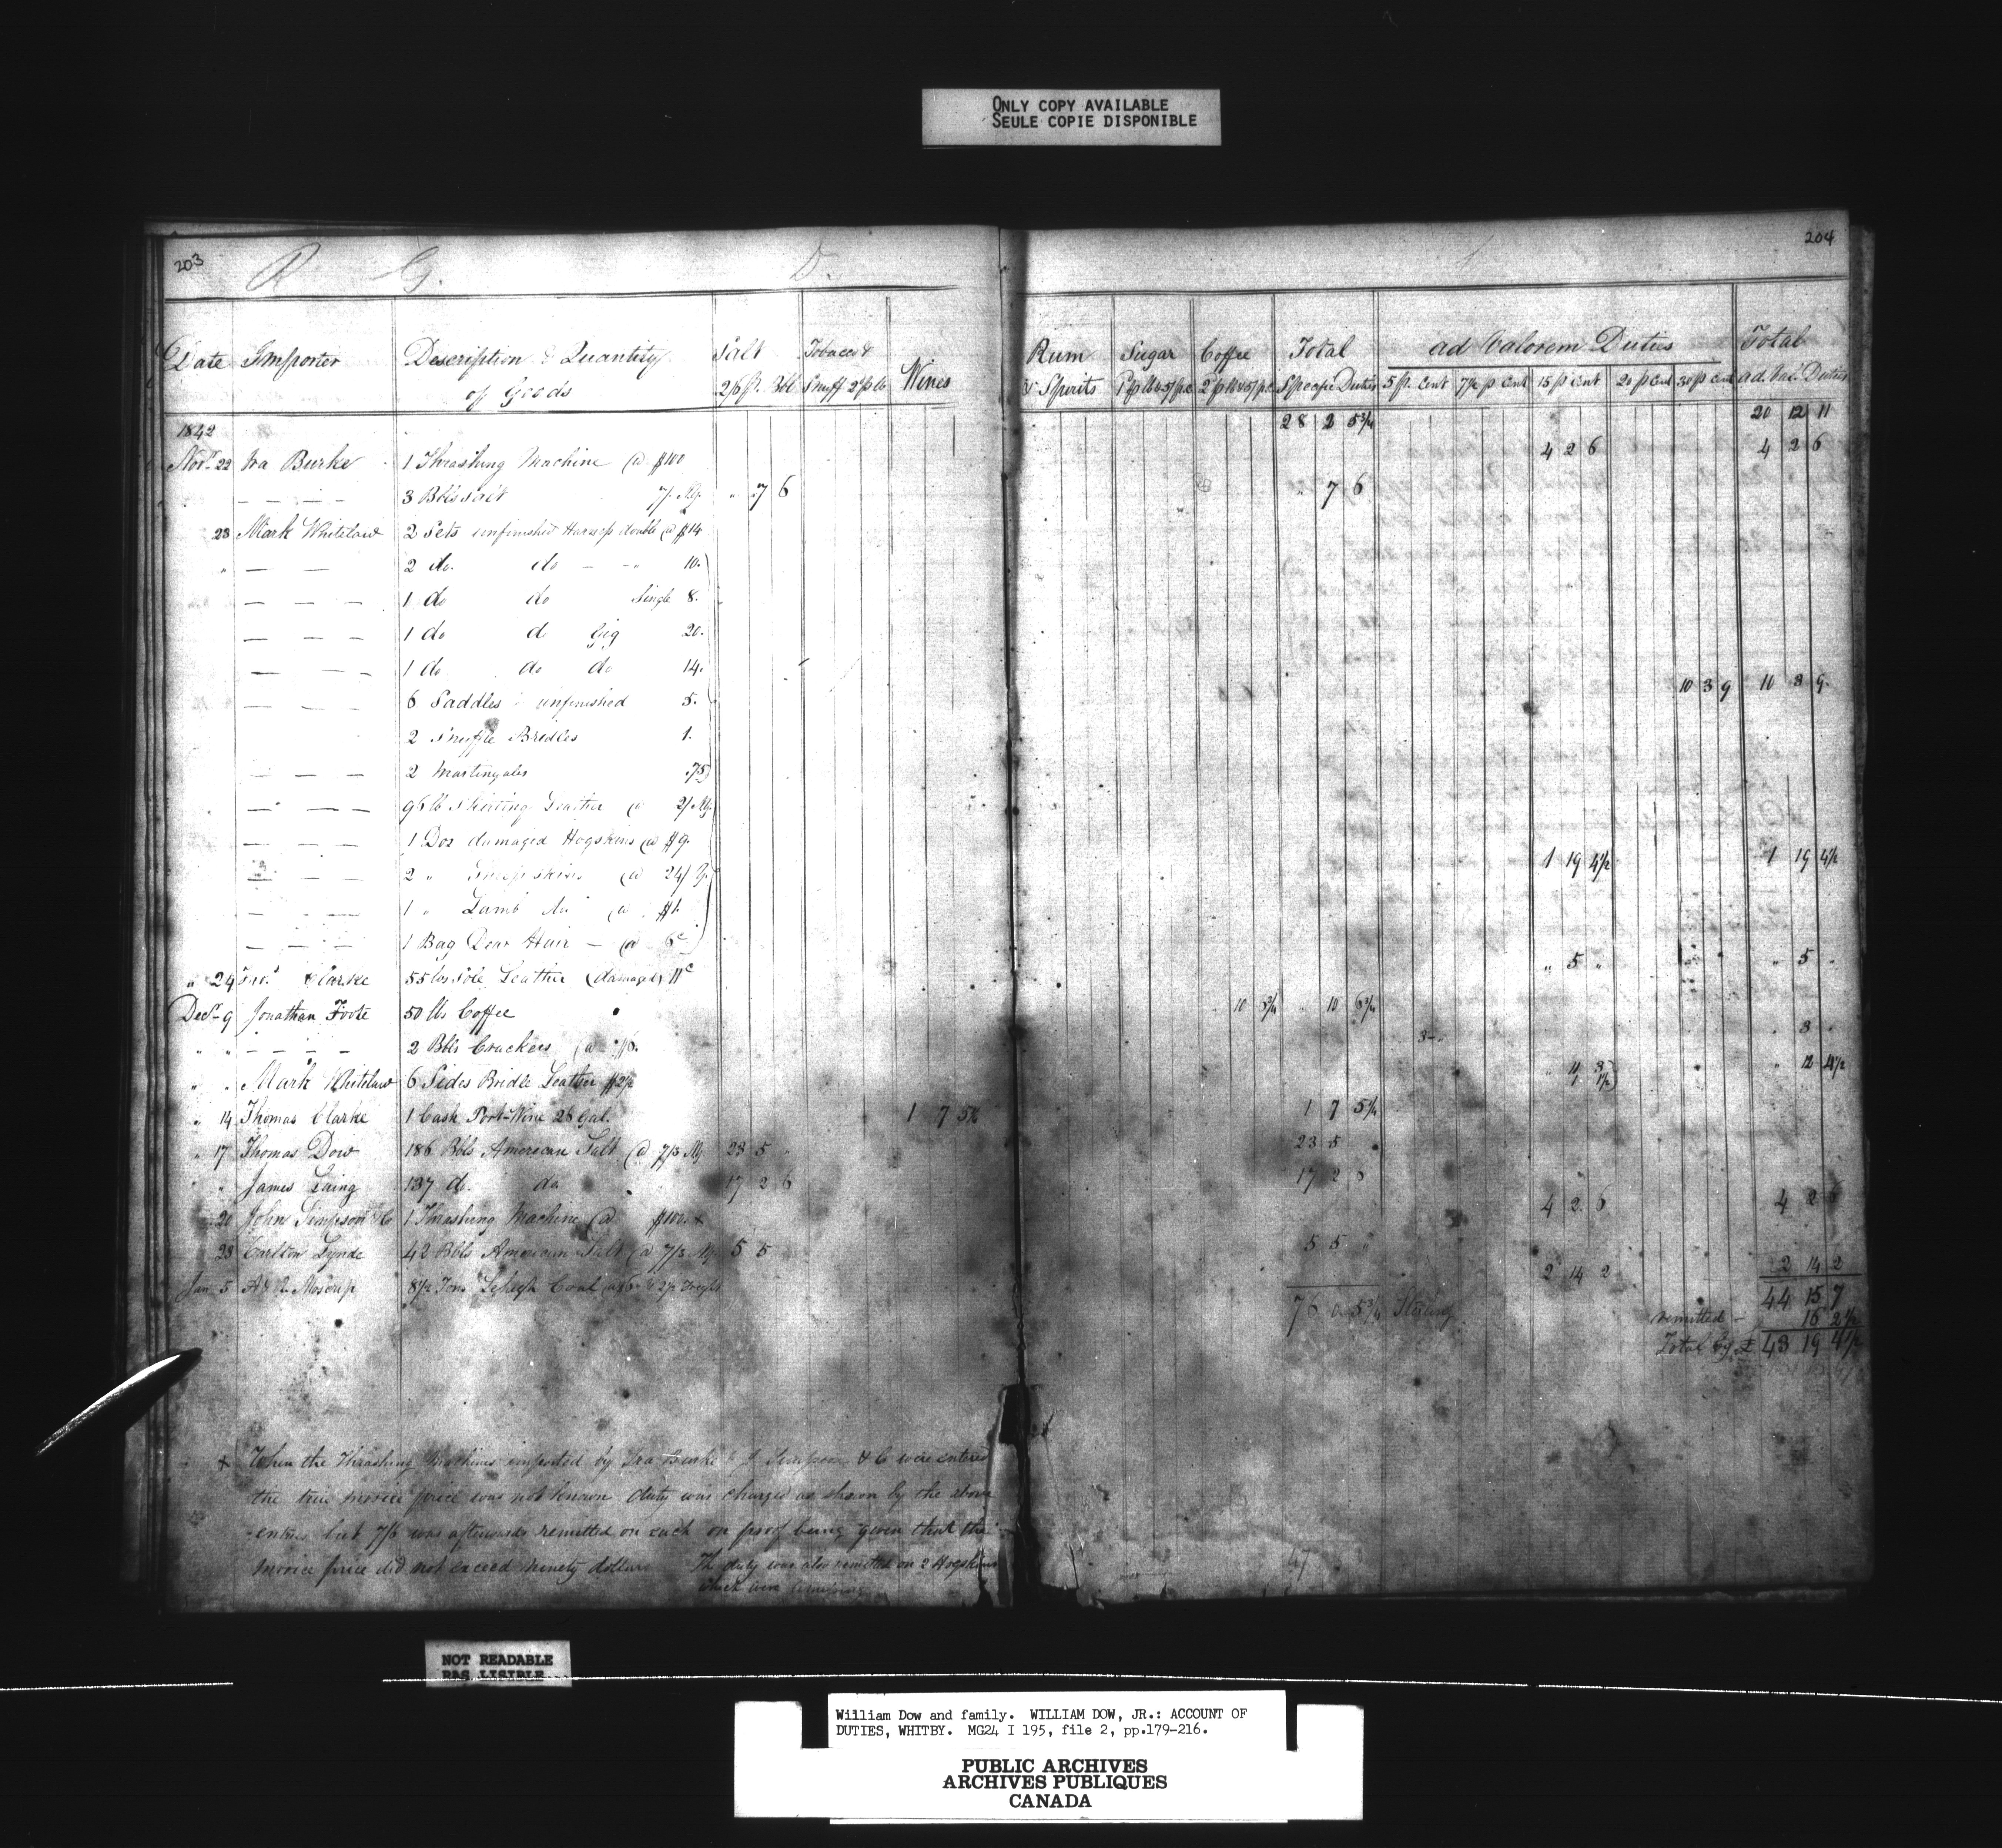 ONLY COPY AVAILABLE
SEULE COPIE DISPONIBLE
203
204
R G. D.
Date Importer Description & Quantity of Goods Salt 2/6 pr. Bbl Tobacco & Snuff 2d p lb Wines Rum & Spirits Sugar Coffee Total Specific Duties ad Valorem Duties 5 pr. Cent 7½ p Cent 15 p Cent 20 p Cent 30 p Cent Total ad. Val. Duties
28 2 5¾ 20 12 11
1842
Novr. 22 Ira Burke 1 Thrashing Machine @ $100 4 2 6 4 2 6
— — — — 3 Bbls salt 7/. " 7 6 " 7 6
23 Mark Whitelaw 2 Sets unfinished Harness double @ $14
" — — 2 do. do — — " 10.
— — — 1 do do Single 8.
— — — 1 do do Gig 20.
— — — 1 do do do 14.
— — — 6 Saddles unfinished 5. 10 3 9 10 3 9.
2 Snaffle Bridles 1.
— — — 2 Martingales .75
— — — 96 lb Skirting Leather @ 2/
— — — 1 Doz damaged Hogskins @ $9. 1 19 4½ 1 19 4½
— — — 2 " Sheepskins @ 24/
— — — 1 " Lamb do @ $1.
— — — 1 Bag Dear Hair — @ 6c
" 24 Jno. Clarke 55 lbs Sole Leather (damaged) 11c " 5 " " 5 "
Decr. 9 Jonathan Foote 50 lbs Coffee 10 " 10
" " — — — — 2 Bbls Crackers @ 3 " 3 "
" " Mark Whitelaw 6 Sides Bridle Leather $2½ " 12 4½
" 14 Thomas Clarke 1 Cask Port-Wine 28 Gal. 1 7 5¼ 1 7 5¼
" 17 Thomas Dow 186 Bbls American Salt @ 7/3 23 5 23 5
" " James Laing 137 do. do 17 2 6 17 2 6
20 John Simpson & Co 1 Thrashing Machine @ $100. + 4 2 6 4 2 6
23 Carlton Lynde 42 Bbls American Salt @ 7/3 5 5 5 5 "
Jan 5 8½ Tons Lehigh Coal 2 14 2 2 14 2
76 0 5¾ Sterling 44 15 7
remitted — 16 2½
Total Cy £ 43 19 4½
+ When the Thrashing Machines imported by Ira Burke & J Simpson & Co were entered
the true invoice price was not known duty was charged as shown by the above
entries but 7/6 was afterwards remitted on each on proof being given that the
invoice price did not exceed ninety dollars The duty was also remitted on 2 Hogskins
which were
47
NOT READABLE
PAS LISIBLE
William Dow and family. WILLIAM DOW, JR.: ACCOUNT OF
DUTIES, WHITBY. MG24 I 195, file 2, pp.179-216.
PUBLIC ARCHIVES
ARCHIVES PUBLIQUES
CANADA